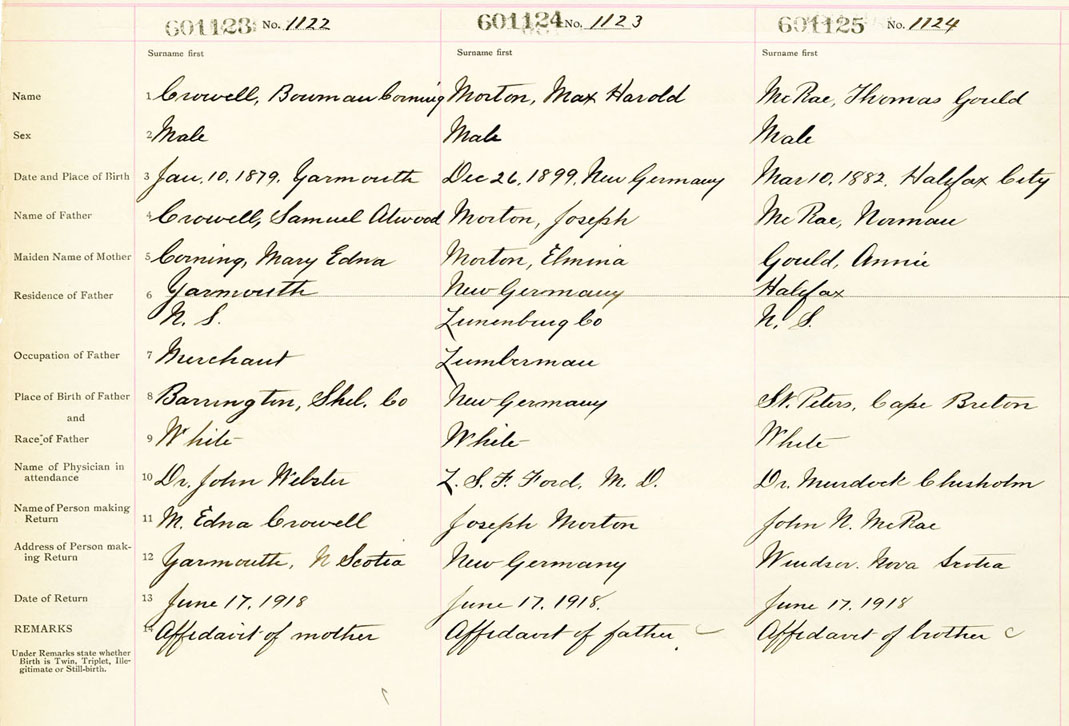 601123 No. 1122 601124 No. 1123 601125 No. 1124
Surname first Surname first Surname first
Name 1 Crowell, Bowman Corning Morton, Max Harold McRae, Thomas Gould
Sex 2 Male Male Male
Date and Place of Birth 3 Jan. 10, 1879. Yarmouth Dec 26, 1899, New Germany Mar 10, 1882, Halifax City
Name of Father 4 Crowell, Samuel Atwood Morton, Joseph McRae, Norman
Maiden Name of Mother 5 Corning, Mary Edna Morton, Elmina Gould, Annie
Residence of Father 6 Yarmouth New Germany Halifax
N. S. Lunenburg Co N. S.
Occupation of Father 7 Merchant Lumberman
Place of Birth of Father 8 Barrington, Shel. Co New Germany St. Peters, Cape Breton
and
Race of Father 9 White White White
Name of Physician in
attendance 10 Dr. John Webster L. S. F. Ford, M. D. Dr. Murdock Chisholm
Name of Person making
Return 11 M. Edna Crowell Joseph Morton John N. McRae
Address of Person mak-
ing Return 12 Yarmouth, N Scotia New Germany Windsor. Nova Scotia
Date of Return 13 June 17, 1918 June 17, 1918. June 17, 1918
REMARKS 14 Affidavit of mother Affidavit of father Affidavit of brother
Under Remarks state whether
Birth is Twin, Triplet, Ille-
gitimate or Still-birth.